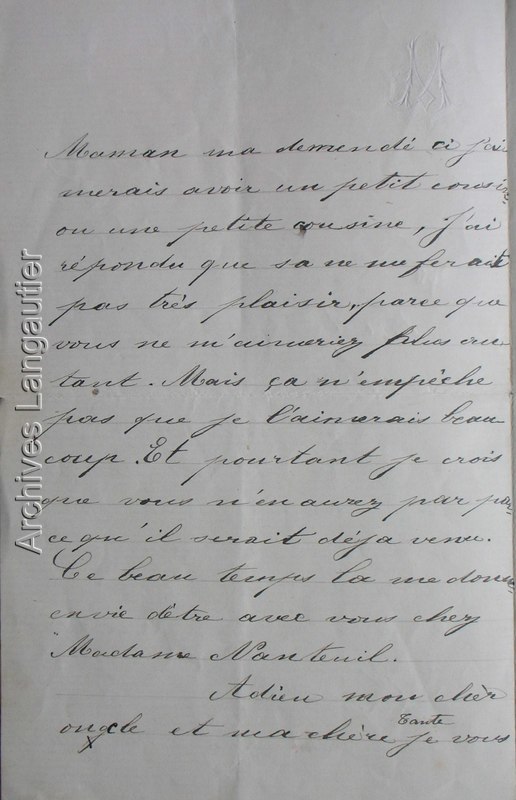 Maman ma demendé ci j'ai
merais avoir un petit cousin
ou une petite cousine, j'ai
répondu que sa ne me ferait
pas très plaisir, parce que
vous ne m'aimeriez plus au
tant. Mais ça n'empêche
pas que je l'aimerais beau
coup. Et pourtant je crois
que vous n'en aurez par par
ce qu'il serait déja venu.
Ce beau temps la me donne
envie d'être avec vous chez
Madame Nanteuil.
Adieu mon chèr
oncle et ma chère Tante je vous
Archives Langautier